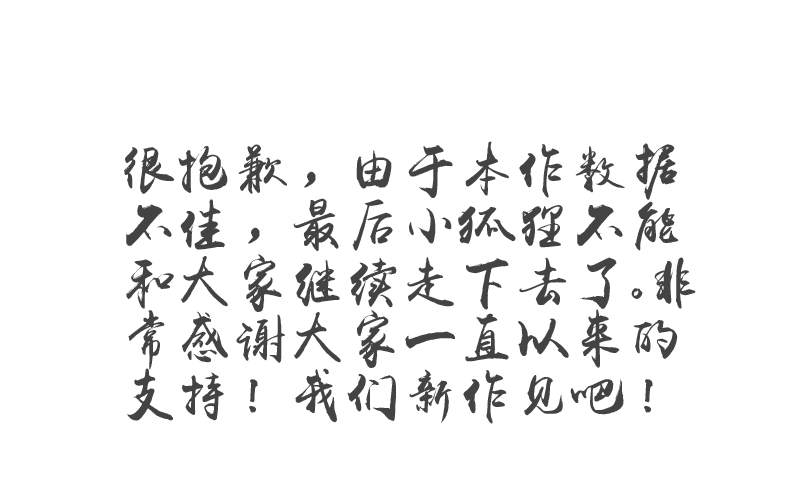 很抱歉，由于本作数据
不佳，最后小狐狸不能
和大家继续走下去了。非
常感谢大家一直以来的
支持！我们新作见吧！